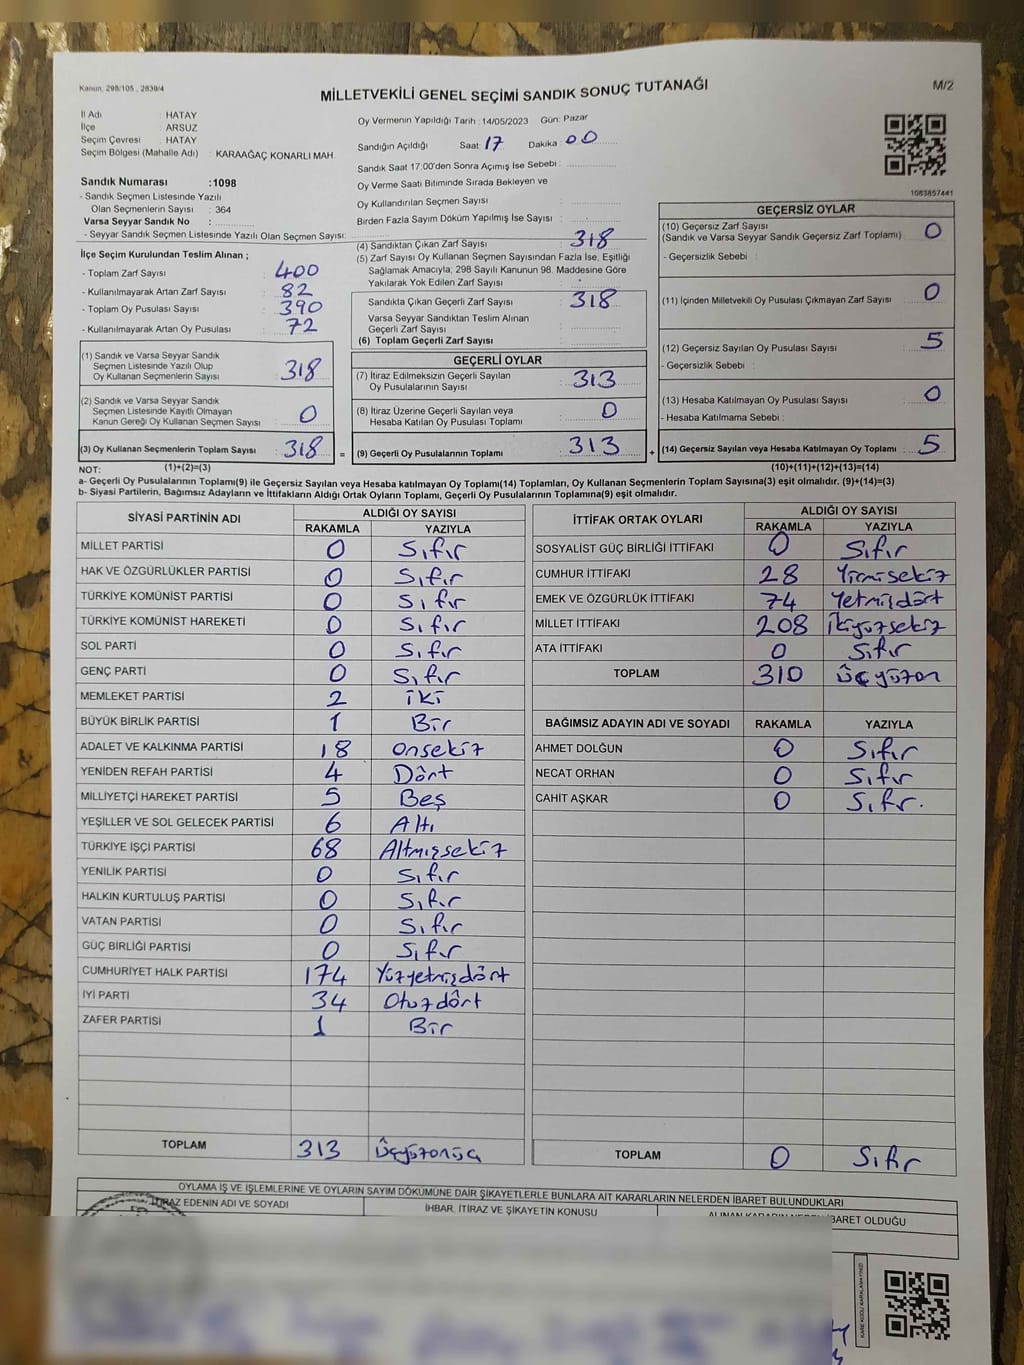 Kanun, 298/105 , 2839/4
MİLLETVEKİLİ GENEL SEÇİMİ SANDIK SONUÇ TUTANAĞI
M/2
İl Adı : HATAY
İlçe : ARSUZ
Seçim Çevresi : HATAY
Seçim Bölgesi (Mahalle Adı) : KARAAĞAÇ KONARLI MAH.
Sandık Numarası :1098
- Sandık Seçmen Listesinde Yazılı
Olan Seçmenlerin Sayısı : 364
Varsa Seyyar Sandık No :
- Seyyar Sandık Seçmen Listesinde Yazılı Olan Seçmen Sayısı:
Oy Vermenin Yapıldığı Tarih : 14/05/2023 Gün: Pazar
Sandığın Açıldığı Saat 17 Dakika 00
Sandık Saat 17:00'den Sonra Açımış İse Sebebi :
Oy Verme Saati Bitiminde Sırada Bekleyen ve
Oy Kullandırılan Seçmen Sayısı :
Birden Fazla Sayım Döküm Yapılmış İse Sayısı :
1083857441
İlçe Seçim Kurulundan Teslim Alınan ;
- Toplam Zarf Sayısı : 400
- Kullanılmayarak Artan Zarf Sayısı : 82
- Toplam Oy Pusulası : 390
- Kullanılmayarak Artan Oy Pusulası : 72
(1) Sandık ve Varsa Seyyar Sandık
Seçmen Listesinde Yazılı Olup
Oy Kullanan Seçmenlerin Sayısı : 318
(2) Sandık ve Varsa Seyyar Sandık
Seçmen Listesinde Kayıtlı Olmayan
Kanun Gereği Oy Kullanan Seçmen Sayısı : 0
(3) Oy Kullanan Seçmenlerin Toplam Sayısı : 318
(1)+(2)=(3)
(4) Sandıktan Çıkan Zarf Sayısı : 318
(5) Zarf Sayısı Oy Kullanan Seçmen Sayısından Fazla İse, Eşitliği
Sağlamak Amacıyla, 298 Sayılı Kanunun 98. Maddesine Göre
Yakılarak Yok Edilen Zarf Sayısı :
Sandıkta Çıkan Geçerli Zarf Sayısı : 318
Varsa Seyyar Sandıktan Teslim Alınan
Geçerli Zarf Sayısı :
(6) Toplam Geçerli Zarf Sayısı :
GEÇERLİ OYLAR
(7) İtiraz Edilmeksizin Geçerli Sayılan
Oy Pusulalarının Sayısı : 313
(8) İtiraz Üzerine Geçerli Sayılan veya
Hesaba Katılan Oy Pusulası Toplamı : 0
= (9) Geçerli Oy Pusulalarının Toplamı : 313 +
GEÇERSİZ OYLAR
(10) Geçersiz Zarf Sayısı
(Sandık ve Varsa Seyyar Sandık Geçersiz Zarf Toplamı) : 0
- Geçersizlik Sebebi :
(11) İçinden Milletvekili Oy Pusulası Çıkmayan Zarf Sayısı : 0
(12) Geçersiz Sayılan Oy Pusulası Sayısı : 5
- Geçersizlik Sebebi :
(13) Hesaba Katılmayan Oy Pusulası Sayısı : 0
- Hesaba Katılmama Sebebi :
(14) Geçersiz Sayılan veya Hesaba Katılmayan Oy Toplamı : 5
(10)+(11)+(12)+(13)=(14)
NOT:
a- Geçerli Oy Pusulalarının Toplamı(9) ile Geçersiz Sayılan veya Hesaba katılmayan Oy Toplamı(14) Toplamları, Oy Kullanan Seçmenlerin Toplam Sayısına(3) eşit olmalıdır. (9)+(14)=(3)
b- Siyasi Partilerin, Bağımsız Adayların ve İttifakların Aldığı Ortak Oyların Toplamı, Geçerli Oy Pusulalarının Toplamına(9) eşit olmalıdır.
SİYASİ PARTİNİN ADI ALDIĞI OY SAYISI
RAKAMLA YAZIYLA
MİLLET PARTİSİ 0 Sıfır
HAK VE ÖZGÜRLÜKLER PARTİSİ 0 Sıfır
TÜRKİYE KOMÜNİST PARTİSİ 0 Sıfır
TÜRKİYE KOMÜNİST HAREKETİ 0 Sıfır
SOL PARTİ 0 Sıfır
GENÇ PARTİ 0 Sıfır
MEMLEKET PARTİSİ 2 iki
BÜYÜK BİRLİK PARTİSİ 1 Bir
ADALET VE KALKINMA PARTİSİ 18 onsekiz
YENİDEN REFAH PARTİSİ 4 Dört
MİLLİYETÇİ HAREKET PARTİSİ 5 Beş
YEŞİLLER VE SOL GELECEK PARTİSİ 6 Altı
TÜRKİYE İŞÇİ PARTİSİ 68 Altmışsekiz
YENİLİK PARTİSİ 0 Sıfır
HALKIN KURTULUŞ PARTİSİ 0 Sıfır
VATAN PARTİSİ 0 Sıfır
GÜÇ BİRLİĞİ PARTİSİ 0 Sıfır
CUMHURİYET HALK PARTİSİ 174 Yüzyetmişdört
İYİ PARTİ 34 Otuzdört
ZAFER PARTİSİ 1 Bir
TOPLAM 313 Üçyüzonüç
İTTİFAK ORTAK OYLARI ALDIĞI OY SAYISI
RAKAMLA YAZIYLA
SOSYALİST GÜÇ BİRLİĞİ İTTİFAKI 0 Sıfır
CUMHUR İTTİFAKI 28 Yirmisekiz
EMEK VE ÖZGÜRLÜK İTTİFAKI 74 Yetmişdört
MİLLET İTTİFAKI 208 İkiyüzsekiz
ATA İTTİFAKI 0 Sıfır
TOPLAM 310 Üçyüzon
BAĞIMSIZ ADAYIN ADI VE SOYADI RAKAMLA YAZIYLA
AHMET DOLĞUN 0 Sıfır
NECAT ORHAN 0 Sıfır
CAHİT AŞKAR 0 Sıfır.
TOPLAM 0 Sıfır
OYLAMA İŞ VE İŞLEMLERİNE VE OYLARIN SAYIM DÖKÜMÜNE DAİR ŞİKAYETLERLE BUNLARA AİT KARARLARIN NELERDEN İBARET BULUNDUKLARI
İTİRAZ EDENİN ADI VE SOYADI İHBAR, İTİRAZ VE ŞİKAYETİN KONUSU ALINAN KARARIN NEDEN İBARET OLDUĞU
KARE KODU KARALAMAYINIZ!